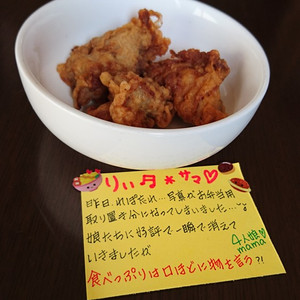 りぃ夕*サマ♡
昨日、れぽたれ…写真がお弁当用
取り置き分になってしまいました…
娘たちに好評で一瞬で消えて
いきましたね
4人娘♡
mama
食べっぷりは口ほどに物を言う?!